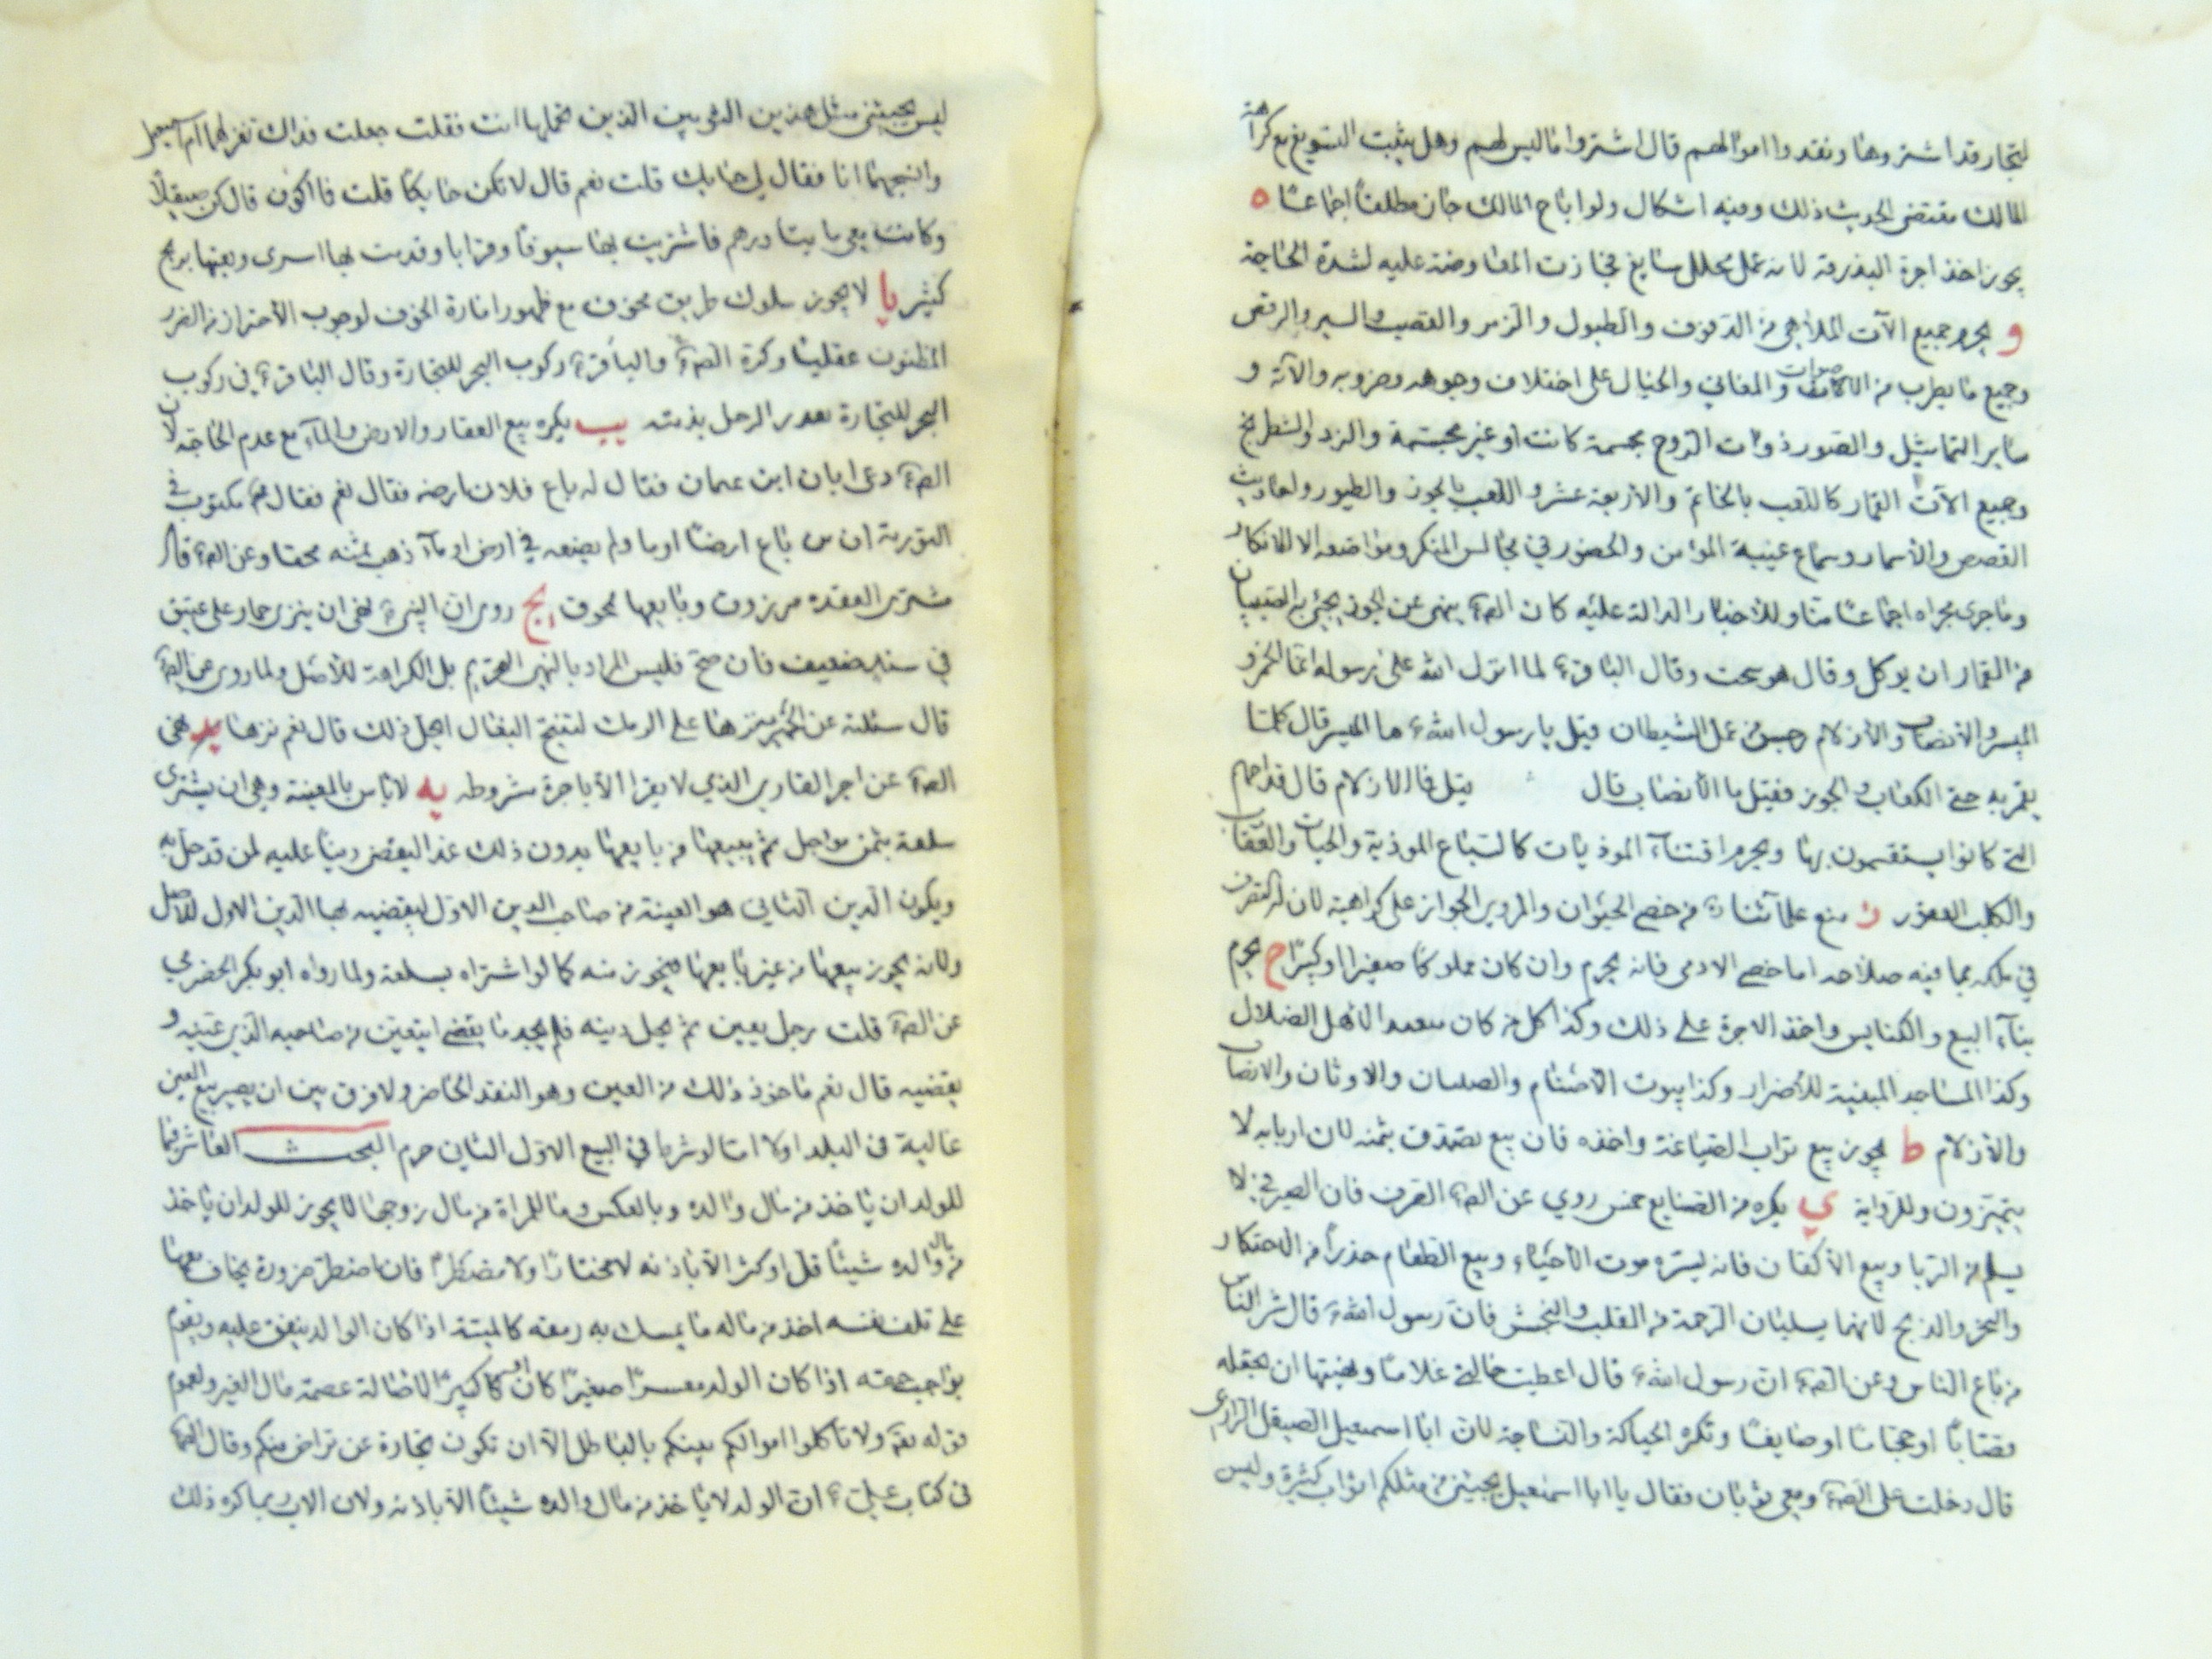 لتجار قد اشتروها ونقدوا اموالهم قال اشتروا ما ليس لهم وهل يثبت التسويغ مع كراهة
المالك مقتضى الحديث ذلك وفيه اشكال ولو اباح المالك جاز مطلقا اجماعا ه
يجوز اخذ اجرة البذرقة لانه عمل محلل سايغ فجازت المعاوضة عليه لشدة الحاجة
و يحرم جميع الآت الملاهي من الدفوف والطبول والزمر والقصب والسير والرقص
وجميع ما يطرب من الاصوات والمغاني والخيال على اختلاف وجوهه وضروبه والآته و
ساير التماثيل والصور ذوات الروح مجسمة كانت او غير مجسمة والنرد والشطرنج
وجميع الآت القمار كاللعب بالخاتم والاربعة عشر و اللعب بالجوز والطيور واحاديث
القصص والاسمار وسماع غيبة المؤمن والحضور في مجالس المنكر ومواضعه الا للانكار
وما جرى مجراه اجماعا منا وللأخبار الدالة عليه كان الصآ ينهى عن الجوز يجيئ به الصبيان
من القمار ان يوكل وقال هو سحت وقال الباقر ع لما انزل الله على رسوله انما الخمر و
الميسر والانصاب والازلام رجس من عمل الشيطان قيل يا رسول الله ع ما الميسر قال كلما
يقمر به حتى الكعاب والجوز فقيل ما الأنصاب قال قيل فالازلام قال قداحهم
التي كانوا يستقسمون بها ويحرم اقتناء الموذيات كالسباع الموذية والحيات والعقارب
والكلب العقور ز منع علمآئنا من خصي الحيوان والمروي الجواز على كراهية لان له التصرف
في ملكه بما فيه صلاحه اما خصي الادمي فانه يحرم وان كان مملوكا صغيرا او كبيرا ح يحرم
بنآء البيع والكنايس واخذ الاجرة على ذلك وكذا كل من كان معبدا لاهل الضلال
وكذا المساجد المبنية للأضرار وكذا بيوت الأصنام والصلبان والاوثان والانصاب
والأزلام ط يجوز بيع تراب الصياغة واخذه فان بيع تصدق بثمنه لان اربابه لا
يتميزون وللرواية ي يكره من الصنايع خمس روي عن الصآ الصرف فان الصيرفي لا
يسلم من الربا وبيع الأكفان فانه يسره موت الأحياء وبيع الطعام حذرا من الاحتكار
والنحر والذبح لانهما يسلبان الرحمة من القلب والنخس فان رسول الله ع قال شر الناس
من باع الناس وعن الصآ ان رسول الله ع قال اعطيت خالتي غلاما ونهيتها ان تجعله
قصابا او حجاما او صايغا وتكره الحياكة والنساجة لان ابا اسمعيل الصيقل الرازي
قال دخلت على الصآ ومعي ثوبان فقال يا ابا اسمعيل يجيئني من مثلكم اثواب كثيرة وليس
ليس يجيئني مثل هذين الثوبين الذين تحملها انت فقلت جعلت فداك تغزلهما ام اسمعيل
وانسجهما انا فقال لي حايك قلت نعم قال لا تكن حايكا قلت فما اكون قال كن صيقلا
وكانت معي مايتا درهم فاشتريت بها سيوفا ومرايا وقدمت بها الرى وبعتها بربح
كثير يا لا يجوز سلوك طريق مخوف مع ظهور امارة الخوف لوجوب الأحتراز من الضرر
المظنون عقليا وكره الصآ والباقر ع ركوب البحر للتجارة وقال الباقر ع في ركوب
البحر للتجارة يغدر الرجل بدينه يب يكره بيع العقار والارض والمآء مع عدم الحاجة لان
الصآ دعى ابان ابن عمان فقال له باع فلان ارضه فقال نعم فقال مكتوب في
التورية ان من باع ارضا او ما ولم يضعه في ارض او مآء ذهب ثمنه محقا وعن الصآ قال
مشترى العقده مرزوق وبايعها ممحوق يج روى ان النبي ع نهى ان ينزى حمار على عتيق
في سند ضعيف فان صح فليس المراد بالنهي التحريم بل الكراهة للأصل ولما روى عن الصآ
قال سئلته عن الحمير ننزها على الرمك لتنتج البغال ايحل ذلك قال نعم نزها يد نهى
الصآ عن اجر القارى الذي لا يقرا الأ باجرة مشروطه يه لا باس بالعينة وهي ان يشترى
سلعة بثمن مؤاجل ثم يبيعها من بايعها بدون ذلك نقدا ليقضى دينا عليه لمن قد حل له
ويكون الدين الثاني هو العينة من صاحب الدين الاول ليقضيه بها الدين الاول للأصل
ولانه يجوز بيعها من غير بايعها فيجوز منه كما لو اشتراه بسلعة ولما رواه ابو بكر الحضرمي
عن الصآ قلت رجل يعين ثم يحل دينه فلم يجد ما يقضي ايتعين من صاحبه الذي عينه و
يقضيه قال نعم ماخوذ ذلك من العين وهو النقد الحاضر ولا فرق بين ان يصير بيع العين
غالبة في البلد او لا اما لو شرط في البيع الاول الثاني حرم البحث العاشر فيما
للولد ان ياخذ من مال والده وبالعكس وما للمراة من مال زوجها لا يجوز للولد ان ياخذ
من مال والده شيئا قل او كثر الأ باذنه لا مختارا ولا مضطرا فان اضطر ضرورة يخاف معها
على تلف نفسه اخذ من ماله ما يمسك به رمقه كالميتة اذا كان الوالد ينفق عليه ويقوم
بواجب حقه اذا كان الولد معسرا صغيرا كان او كبيرا لاصالة عصمة مال الغير ولعموم
قوله تعآ ولا تأكلوا اموالكم بينكم بالباطل الأ ان تكون تجارة عن تراض منكم وقال الصآ
في كتاب علي ع ان الولد لا ياخذ من مال والده شيئا الأ باذنه ولان الاب ربما كره ذلك